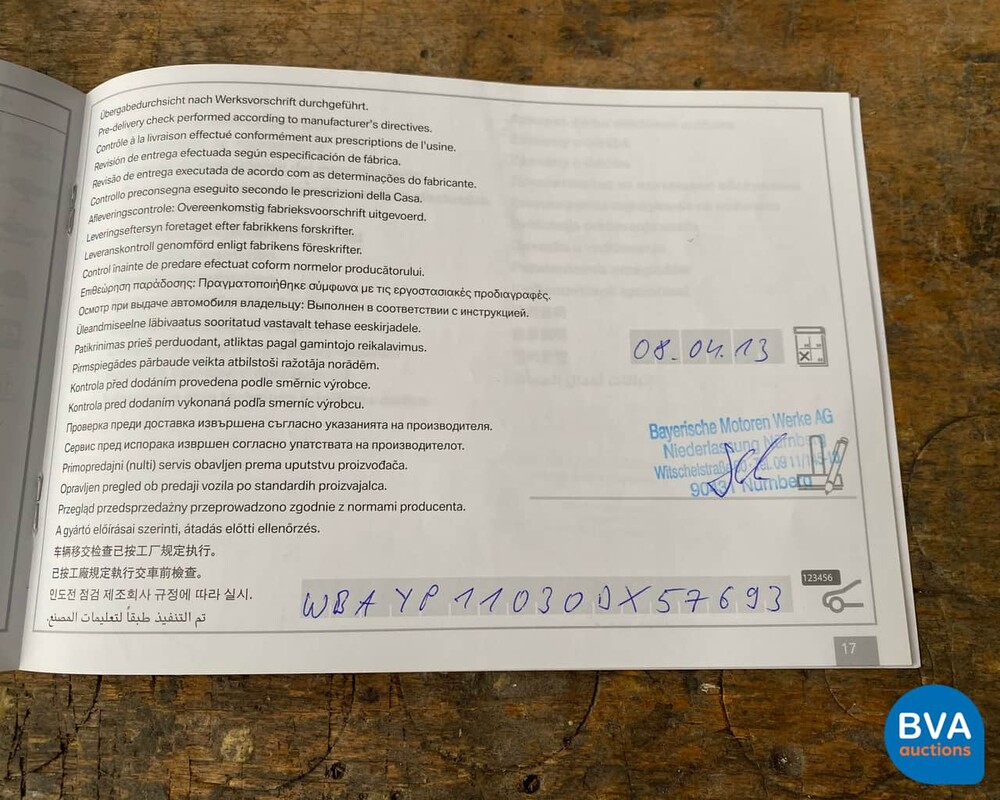 Übergabedurchsicht nach Werksvorschrift durchgeführt.
Pre-delivery check performed according to manufacturer's directives.
Contrôle à la livraison effectué conformément aux prescriptions de l'usine.
Revisión de entrega efectuada según especificación de fábrica.
Revisão de entrega executada de acordo com as determinações do fabricante.
Controllo preconsegna eseguito secondo le prescrizioni della Casa.
Afleveringscontrole: Overeenkomstig fabrieksvoorschrift uitgevoerd.
Leveringseftersyn foretaget efter fabrikkens forskrifter.
Leveranskontroll genomförd enligt fabrikens föreskrifter.
Control înainte de predare efectuat coform normelor producătorului.
Επιθεώρηση παράδοσης: Πραγματοποιήθηκε σύμφωνα με τις εργοστασιακές προδιαγραφές.
Осмотр при выдаче автомобиля владельцу: Выполнен в соответствии с инструкцией.
Üleandmiseelne läbivaatus sooritatud vastavalt tehase eeskirjadele.
Patikrinimas prieš perduodant, atliktas pagal gamintojo reikalavimus.
Pirmspiegādes pārbaude veikta atbilstoši ražotāja norādēm.
Kontrola před dodáním provedena podle směrnic výrobce.
Kontrola pred dodaním vykonaná podľa smerníc výrobcu.
Проверка преди доставка извършена съгласно указанията на производителя.
Сервис пред испорака извршен согласно упатствата на производителот.
Primopredajni (nulti) servis obavljen prema uputstvu proizvođača.
Opravljen pregled ob predaji vozila po standardih proizvajalca.
Przegląd przedsprzedażny przeprowadzono zgodnie z normami producenta.
A gyártó előírásai szerinti, átadás előtti ellenőrzés.
车辆移交检查已按工厂规定执行。
已按工廠規定執行交車前檢查。
인도전 점검 제조회사 규정에 따라 실시.
تم التنفيذ طبقاً لتعليمات المصنع.
08.04.13
Bayerische Motoren Werke AG
Niederlassung Nürnberg
Witschelstraße Tel. 09 11/
90431 Nürnberg
123456
WBAYP11030DX57693
17
BVA
auctions